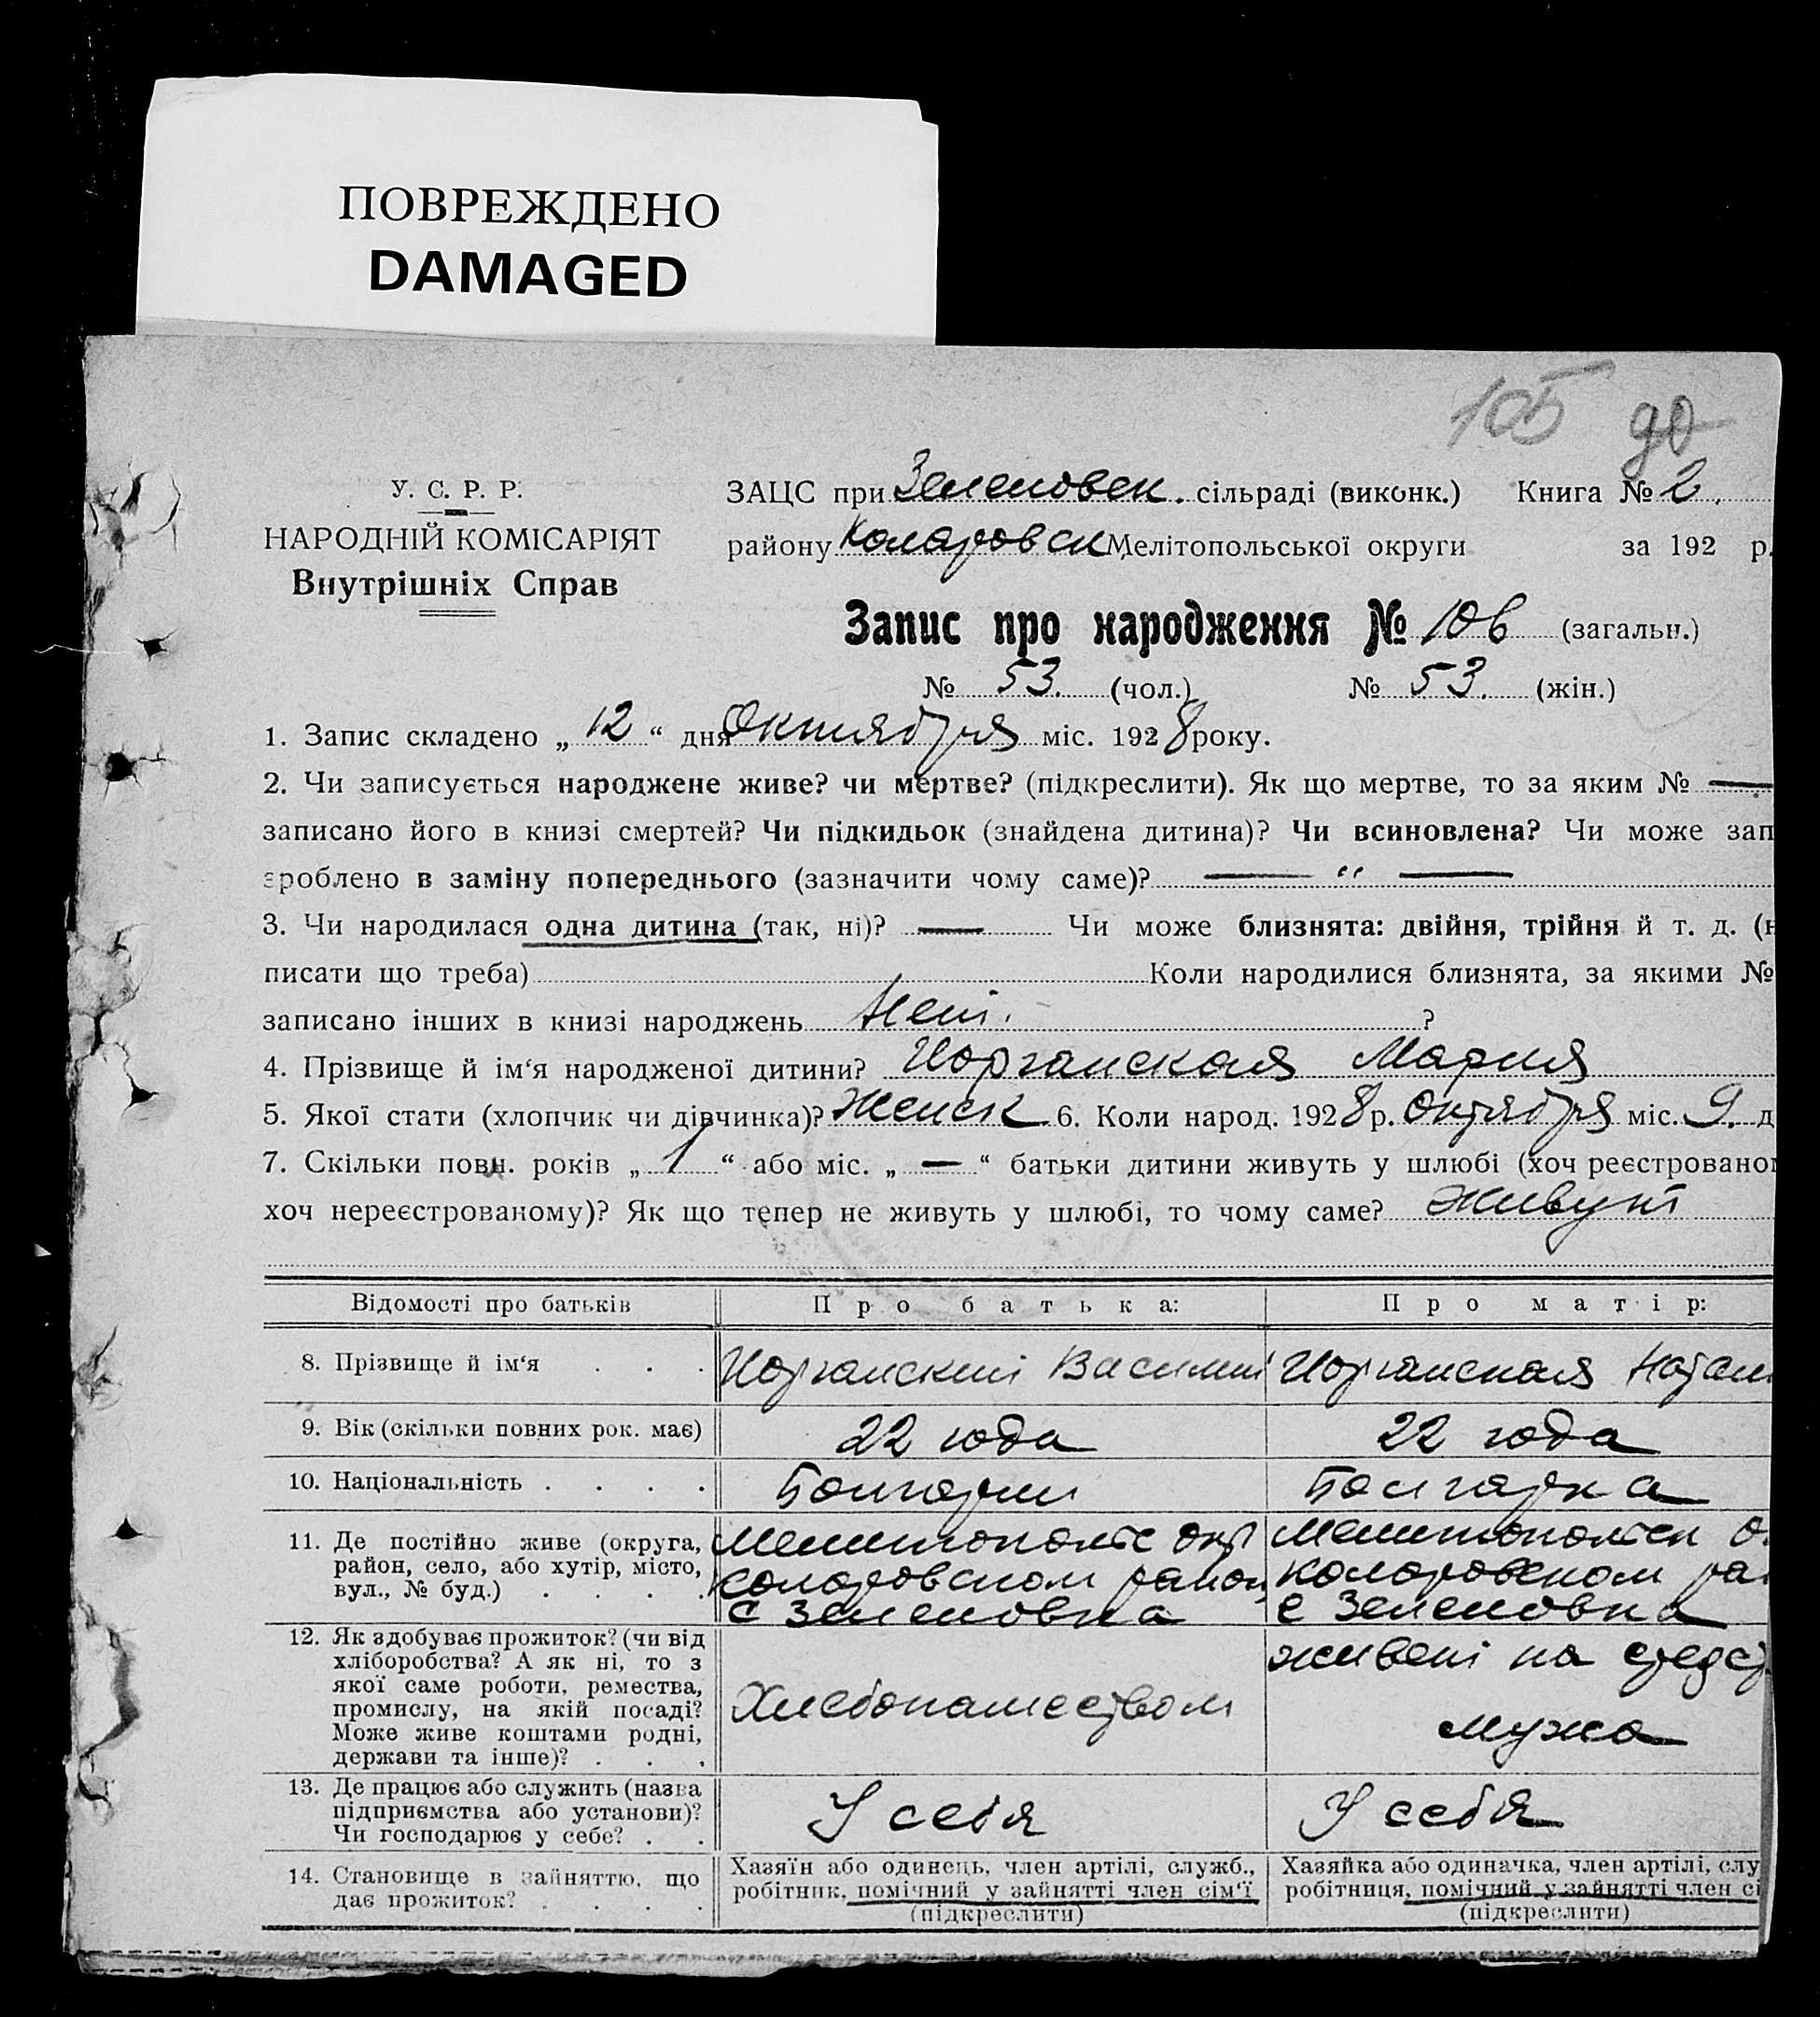 ПОВРЕЖДЕНО
DAMAGED
105 90
У. С. Р. Р.
НАРОДНІЙ КОМІСАРІЯТ
Внутрішніх Справ
ЗАЦС при Зеленовск. сільраді (виконк.) Книга № 2.
району Коларовск Мелітопольської округи за 192 р.
Запис про народження № 106 (загальн.)
№ 53. (чол.) № 53. (жін.)
1. Запис складено „ 12 “ дня Октября міс. 1928 року.
2. Чи записується народжене живе? чи мертве? (підкреслити). Як що мертве, то за яким № —
записано його в книзі смертей? Чи підкидьок (знайдена дитина)? Чи всиновлена? Чи може зап
зроблено в заміну попереднього (зазначити чому саме)? — “ —
3. Чи народилася одна дитина (так, ні)? — Чи може близнята: двійня, трійня й т. д. (н
писати що треба) Коли народилися близнята, за якими №
записано інших в книзі народжень Нет. ?
4. Прізвище й ім‘я народженої дитини? Иорганская Мария
5. Якої стати (хлопчик чи дівчинка)? Женск 6. Коли народ. 1928 р. Октября міс. 9. д
7. Скільки повн. років „ 1 “ або міс. „ — “ батьки дитини живуть у шлюбі (хоч реєстрованом
хоч нереєстрованому)? Як що тепер не живуть у шлюбі, то чому саме? Живут
Відомості про батьків Про батька: Про матір:
8. Прізвище й ім‘я . . . Иорганский Василий Иорганская Натал
9. Вік (скільки повних рок. має) 22 года 22 года
10. Національність . . . . Болгарин Болгарка
11. Де постійно живе (округа,
район, село, або хутір, місто,
вул., № буд.) . . . .
Мелитопольс окр
Коларовском район,
с Зеленовка
Мелитопольск о.
Коларовском ра
с Зеленовка
12. Як здобуває прожиток? (чи від
хліборобства? А як ні, то з
якої саме роботи, ремества,
промислу, на якій посаді?
Може живе коштами родні,
держави та інше)? . . .
Хлебопашеством
живет на средст
мужа
13. Де працює або служить (назва
підприємства або установи)?
Чи господарює у себе? . .
У себя
У себя
14. Становище в зайняттю, що
дає прожиток? . . . .
Хазяїн або одинець, член артілі, служб.,
робітник, помічний у зайнятті член сім‘ї
(підкреслити)
Хазяйка або одиначка, член артілі, слу
робітниця, помічний у зайнятті член сі
(підкреслити)